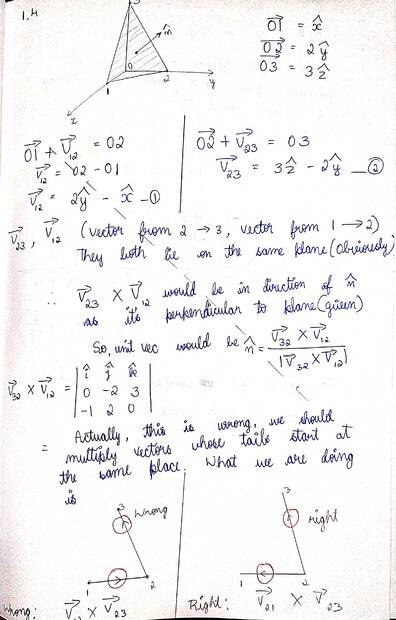 1.4
3
n̂
0
1
2
y
x
→01 = x̂
→02 = 2ŷ
→03 = 3ẑ
→01 + →V12 = 02
→V12 = 02 - 01
→V12 = 2ŷ - x̂ —①
→02 + →V23 = 03
→V23 = 3ẑ - 2ŷ —②
→V23, →V12 (vector from 2 → 3, vector from 1 → 2)
They both lie on the same plane (obviously)
∴ →V23 × →V12 would be in direction of n̂
as its perpendicular to plane (given)
So, unit vec would be n̂ = →V32 × →V12 / |→V32 × →V12|
→V32 × →V12 = | î ĵ k̂ |
0 -2 3
-1 2 0
= Actually, this is wrong, we should
multiply vectors whose tails start at
the same place. What we are doing
is
3
Wrong
1
2
3
right
1
2
Wrong: →V12 × →V23
Right: →V21 × →V23